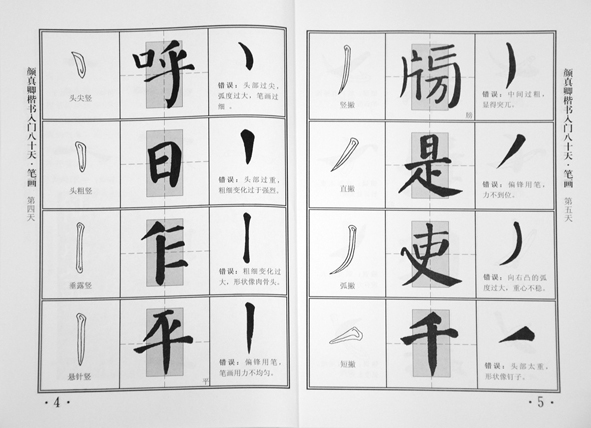 颜真卿楷书入门八十天·笔画 第四天
头尖竖
呼
错误：头部过尖，
弧度过大，笔画过
细。
头粗竖
日
错误：头部过重，
粗细变化过于强烈。
垂露竖
乍
错误：粗细变化过
大，形状像肉骨头。
悬针竖
平
平
错误：偏锋用笔，
笔画用力不均匀。
·4·
颜真卿楷书入门八十天·笔画 第五天
竖撇
牓
错误：中间过粗，
显得突兀。
直撇
是
错误：偏锋用笔，
力不到位。
弧撇
吏
错误：向右凸的弧
度过大，重心不稳。
短撇
千
错误：头部太重，
形状像钉子。
·5·